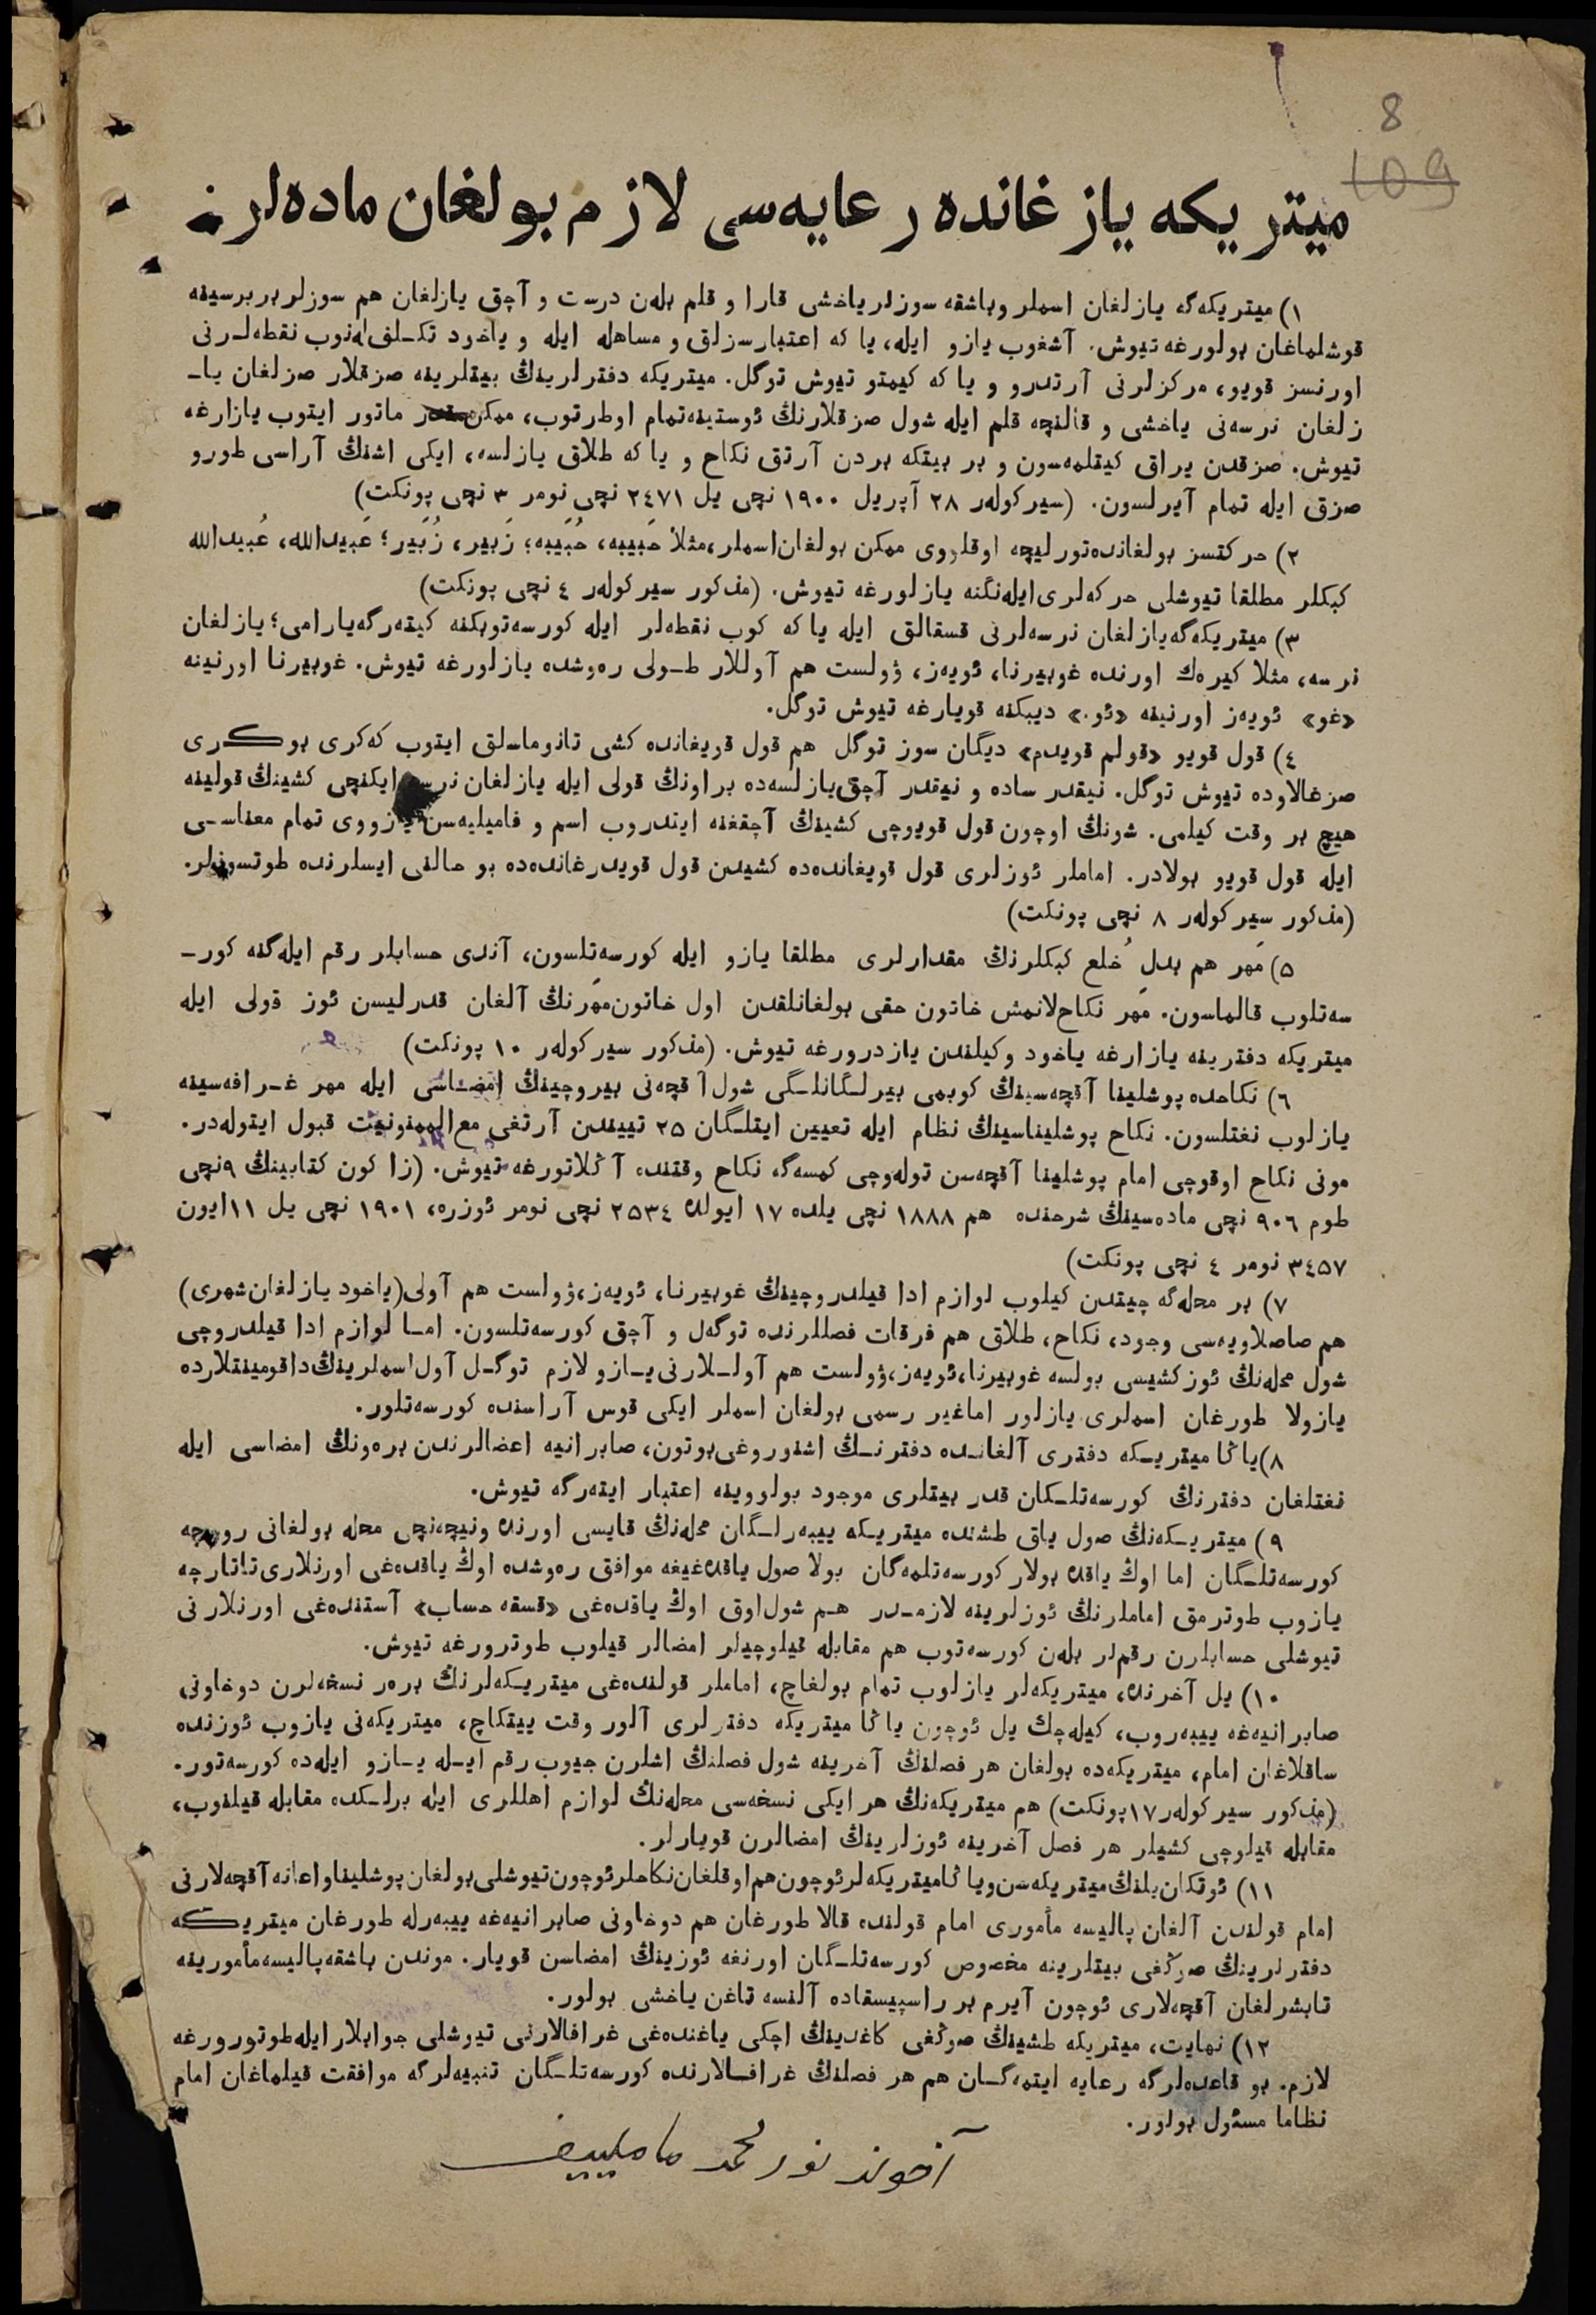 8
109
میتریکه یازغانده رعایه‌سی لازم بولغان ماده‌لر.
۱) میتریکه‌گه یازلغان اسملر وباشقه سوزلر یاخشی قارا و قلم بله‌ن درست و آچق یازلغان هم سوزلر بربرسینه
قوشلماغان بولورغه تیوش. آشغوب یازو ایله، یا که اعتبارسزلق و مساهله ایله و یاخود تکـلف له‌نوب نقطه‌لـرنی
اورنسز قویو، مرکزلرنی آرتدرو و یا که کیمتو تیوش توگل. میتریکه دفترلرینڭ بیتلرینه صزقلار صزلغان یاـ
زلغان نرسه‌نی یاخشی و قالنچه قلم ایله شول صزقلارنڭ ئوستینه تمام اوطرتوب، ممکن قدر ماتور ایتوب یازارغه
تیوش. صزقدن یراق کیتلمه‌سون و بر بیتکه بردن آرتق نکاح و یا که طلاق یازلسه، ایکی اشنڭ آراسی طورو
صزق ایله تمام آیرلسون. (سیرکوله‌ر ۲۸ آپریل ۱۹۰۰ نچی یل ۲٤۷۱ نچی نومر ۳ نچی پونکت)
۲) حرکتسز بولغانده تورلیچه اوقلووی ممکن بولغان اسملر، مثلا حَبیبه، حُبَیبه؛ زَبیر، زُبَیر؛ عَبیدالله، عُبیدالله
کبکلر مطلقا تیوشلی حرکه‌لری ایله‌نگنه یازلورغه تیوش. (مذکور سیرکوله‌ر ٤ نچی پونکت)
۳) میتریکه‌گه یازلغان نرسه‌لرنی قسقالق ایله یا که کوب نقطه‌لر ایله کورسه‌توبکنه کیته‌رگه یارامی؛ یازلغان
نرسه، مثلا کیره‌ك اورنده غوبیرنا، ئویه‌ز، ؤولست هم آوللار طـولی ره‌وشده یازلورغه تیوش. غوبیرنا اورنینه
«غو» ئویه‌ز اورنینه «ئو.» دیبکنه قویارغه تیوش توگل.
٤) قول قویو «قولم قویدم» دیگان سوز توگل هم قول قویغانده کشی تانوماسلق ایتوب که‌کری بوکـری
صزغالاوده تیوش توگل. نیقدر ساده و نیقدر آچق یازلسه‌ده براونڭ قولی ایله یازلغان نرسه ایکنچی کشینڭ قولینه
هیچ بر وقت کیلمی. شونڭ اوچون قول قویوچی کشینڭ آچقغنه ایتدروب اسم و فامیلیه‌سن یازووی تمام معناسـی
ایله قول قویو بولادر. اماملر ئوزلری قول قویغانده‌ده کشیدن قول قویدرغانده‌ده بو حالنی ایسلرنده طوتسونلر.
(مذکور سیرکوله‌ر ۸ نچی پونکت)
۵) مَهر هم بدلِ خُلع کبکلرنڭ مقدارلری مطلقا یازو ایله کورسه‌تلسون، آندی حسابلر رقم ایله گنه کورـ
سه‌تلوب قالماسون. مَهر نکاح‌لانمش خاتون حقی بولغانلقدن اول خاتون مَهرنڭ آلغان قدرلیسن ئوز قولی ایله
میتریکه دفترینه یازارغه یاخود وکیلندن یازدرورغه تیوش. (مذکور سیرکوله‌ر ۱۰ پونکت)
٦) نکاحده پوشلینا آقچه‌سینڭ کوبمی بیرلـگانلـگی شول آقچه‌نی بیروچینڭ امضـاسی ایله مهر غـرافه‌سینه
یازلوب نغتلسون. نکاح پوشلیناسینڭ نظام ایله تعیین ایتلـگان ۲۵ تییندن آرتغی مع الممنونیت قبول ایتوله‌در.
مونی نکاح اوقوچی امام پوشلینا آقچه‌سن توله‌وچی کمسه‌گه نکاح وقتنده آڭلاتورغه تیوش. (زاکون کتابینڭ ۹نچی
طوم ۹۰٦ نچی ماده‌سینڭ شرحنده هم ۱۸۸۸ نچی یلده ۱۷ ایولده ۲۵۳٤ نچی نومر ئوزره، ۱۹۰۱ نچی یل ۱۱ایون
۳٤۵۷ نومر ٤ نچی پونکت)
۷) بر محله‌گه چیتدن کیلوب لوازم ادا قیلدروچینڭ غوبیرنا، ئویه‌ز، ؤولست هم آولی (یاخود یازلغان شهری)
هم صاصلاویه‌سی وجود، نکاح، طلاق هم فرقات فصللرنده توگه‌ل و آچق کورسه‌تلسون. امـا لوازم ادا قیلدروچی
شول محله‌نڭ ئوز کشیسی بولسه غوبیرنا، ئویه‌ز، ؤولست هم آولـلارنی یـازو لازم توگـل آول اسملرینڭ داقومینتلارده
یازولا طورغان اسملری یازلور اماغیر رسمی بولغان اسملر ایکی قوس آراسنده کورسه‌تلور.
۸) یاڭا میتریـکه دفتری آلغانـده دفترنـڭ اشنوروغی بوتون، صابرانیه اعضالرندن بره‌ونڭ امضاسی ایله
نغتلغان دفترنڭ کورسه‌تلـگان قدر بیتلری موجود بولووینه اعتبار ایته‌رگه تیوش.
۹) میتریـکه‌نڭ صول یاق طشنده میتریـکه ییبه‌رلـگان محله‌نڭ قایسی اورنده ونیچه‌نچی محله بولغانی روسچه
کورسه‌تلـگان اما اوڭ یاقده بولار کورسه‌تلمه‌گان بولا صول یاقده‌غیغه موافق ره‌وشده اوڭ یاقده‌غی اورنلاری تاتارچه
یازوب طوترمق اماملرنڭ ئوزلرینه لازمـدر هـم شول‌اوق اوڭ یاقده‌غی «قسقه حساب» آستنده‌غی اورنلارنی
تیوشلی حسابلرن رقم‌لر بله‌ن کورسه‌توب هم مقابله قیلوچیلر امضالر قیلوب طوترورغه تیوش.
۱۰) یل آخرنده، میتریکه‌لر یازلوب تمام بولغاچ، اماملر قولنده‌غی میتریـکه‌لرنڭ بره‌ر نسخه‌لرن دوخاونی
صابرانیه‌غه ییبه‌روب، کیله‌چك یل ئوچون یاڭا میتریکه دفترلری آلور وقت ییتکاچ، میتریکه‌نی یازوب ئوزنده
ساقلاغان امام، میتریکه‌ده بولغان هر فصلنڭ آخرینه شول فصلنڭ اشلرن جیوب رقم ایـله یـازو ایله‌ده کورسه‌تور.
(مذکور سیرکوله‌ر ۱۷پونکت) هم میتریکه‌نڭ هر ایکی نسخه‌سی محله‌نڭ لوازم اهللری ایله برلـکده مقابله قیلنوب،
مقابله قیلوچی کشیلر هر فصل آخرینه ئوزلرینڭ امضالرن قویارلر.
۱۱) ئوتکان یلنڭ میتریکه‌سن و یاڭا میتریکه‌لر ئوچون هم اوقلغان نکاحلر ئوچون تیوشلی بولغان پوشلینا و اعانه آقچه‌لارنی
امام قولندن آلغان پالیسه مأموری امام قولنده قالا طورغان هم دوخاونی صابرانیه‌غه ییبه‌رله طورغان میتریـکه
دفترلرینڭ صوڭغی بیتلرینه مخصوص کورسه‌تلـگان اورنغه ئوزینڭ امضاسن قویار. موندن باشقه پالیسه مأمورینه
تابشرلغان آقچه‌لاری ئوچون آیرم بر راسپیسقاده آلنسه تاغن یاخشی بولور.
۱۲) نهایت، میتریکه طشینڭ صوڭغی کاغدینڭ اچکی یاغنده‌غی غرافالارنی تیوشلی جوابلار ایله طوتورورغه
لازم. بو قاعده‌لرگه رعایه ایتمه‌گـان هم هر فصلنڭ غرافـالارنده کورسه‌تلـگان تنبیه‌لرگه موافقت قیلماغان امام
نظاما مسئول بولور.
آخوند نورمحمد ماملییف